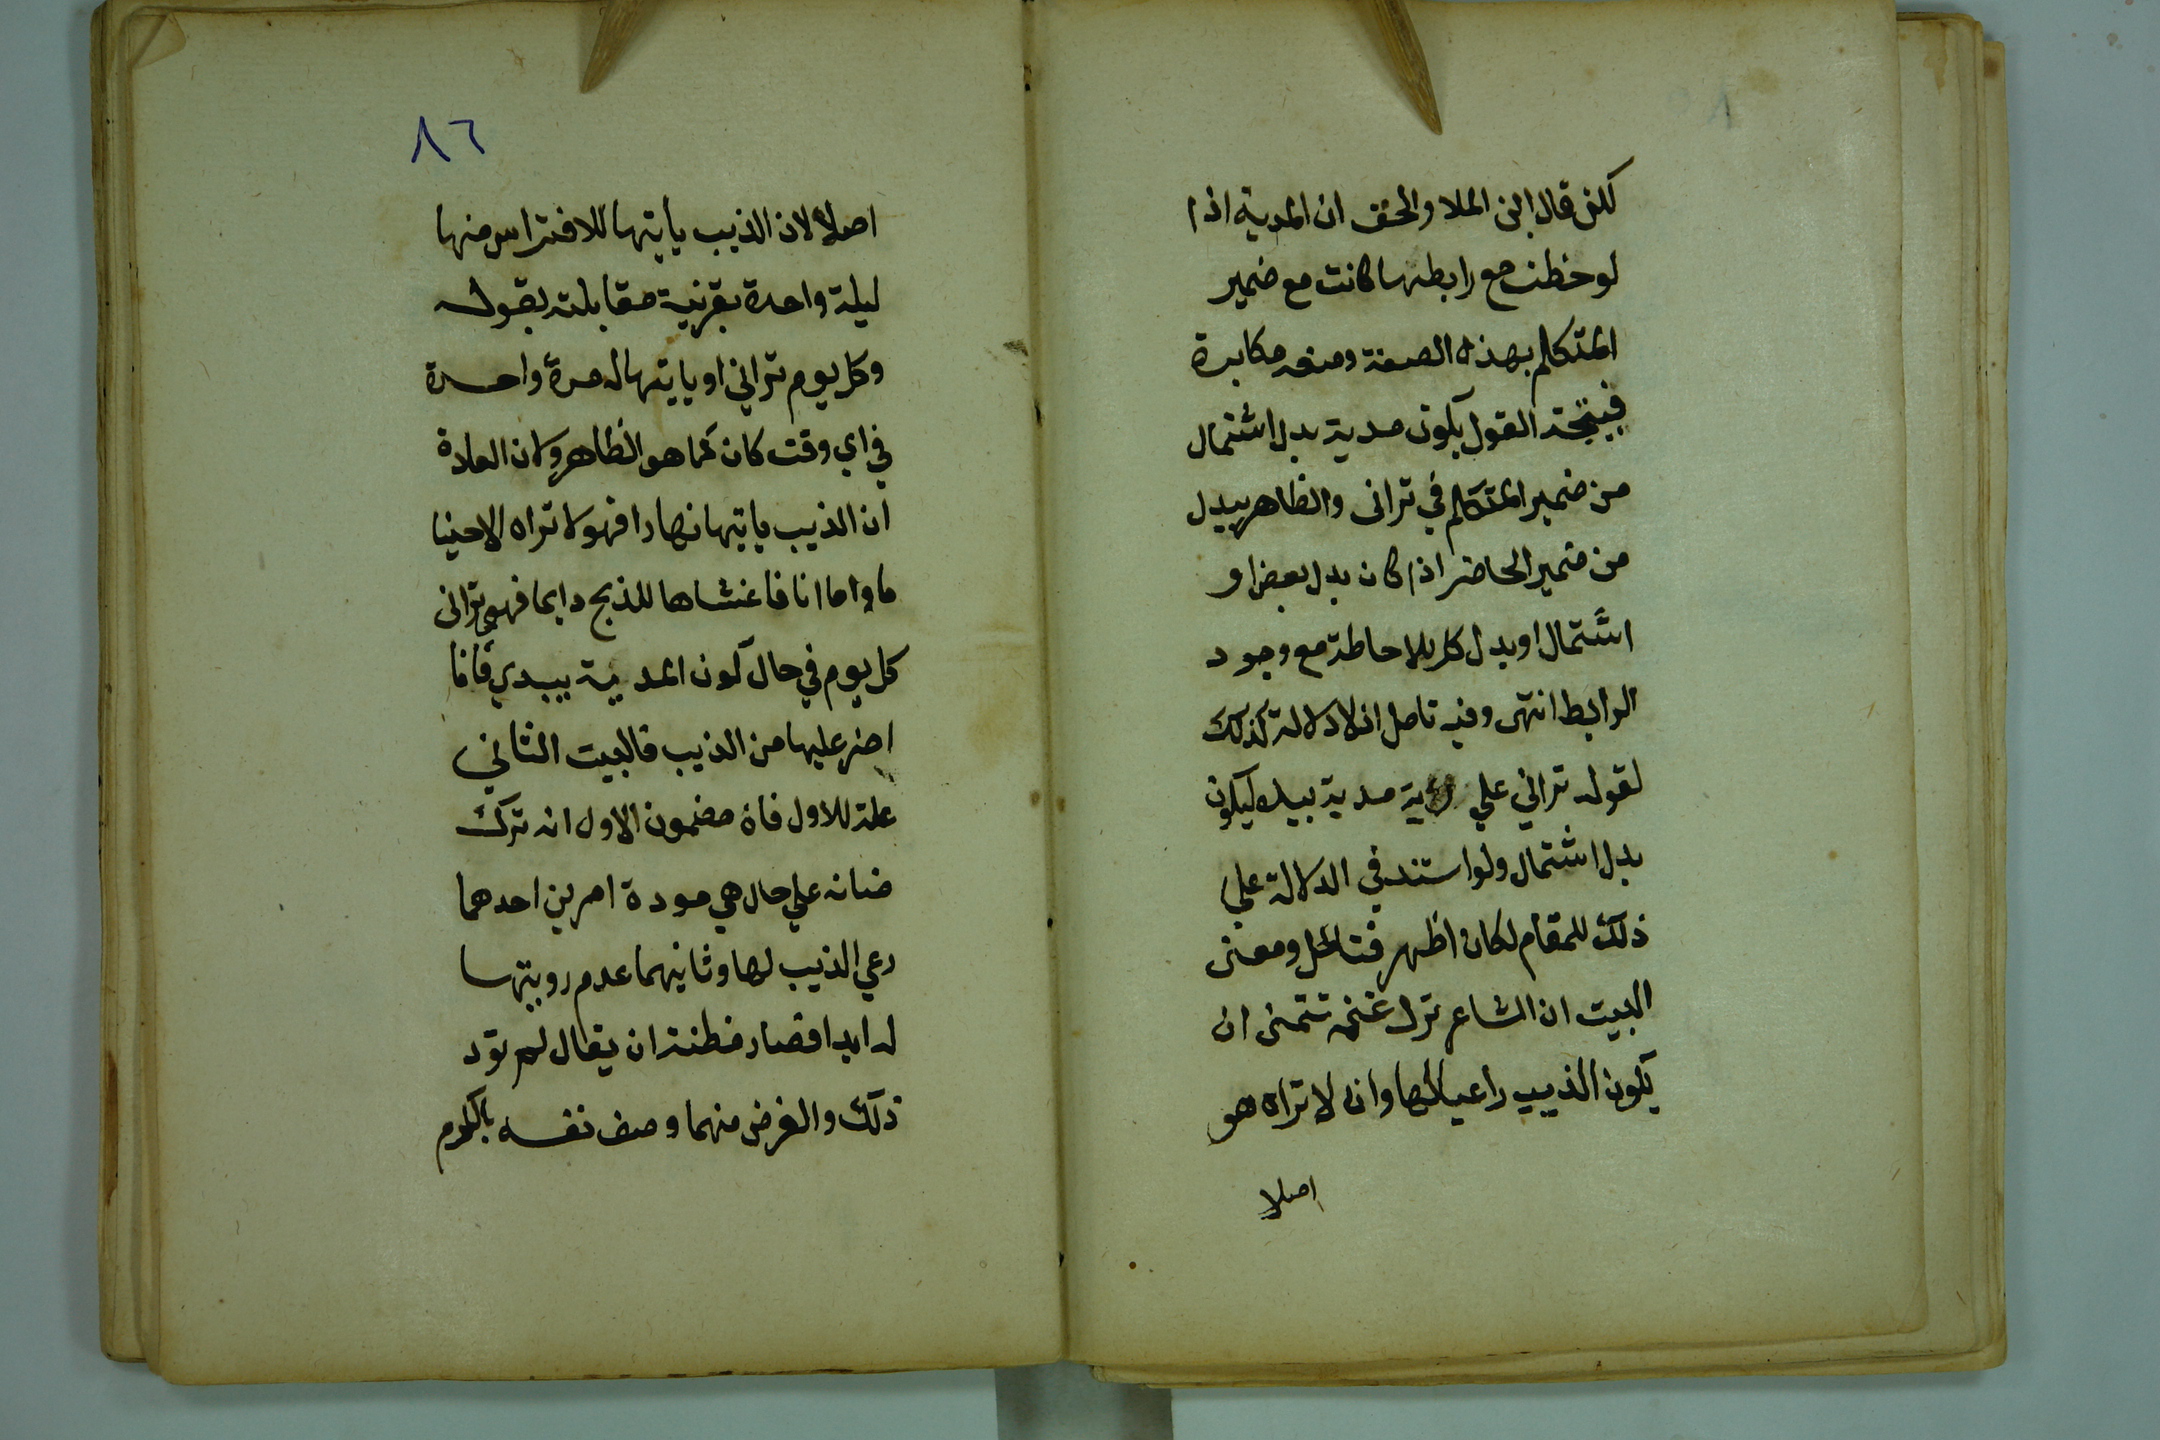 لكن قال ابن الملا والحق ان المدية اذا
لوحظت مع رابطها كانت مع ضمير
المتكلم بهذه الصفة ومنعه مكابرة
فيتجه القول بكون مدية بدل اشتمال
من ضمير المتكلم في تراني والظاهر يبدل
من ضمير الحاضر اذا كان بدل بعض او
اشتمال او بدل كل للاحاطة مع وجود
الرابط انتهى وفيه تامل اذ لا دلالة كذلك
لقوله تراني علي رؤية مدية بيده ليكون
بدل اشتمال ولو استند في الدلالة علي
ذلك للمقام لكان اظهر فتامل ومعنى
البيت ان الشاعر ترك غنمه تتمنى ان
يكون الذيب راعيا لها وان لا تراه هو
اصلا
٨٦
اصلا لان الذيب يأتيها للافتراس منها
ليلة واحدة بقرنية مقابلته بقوله
وكل يوم تراني او ياتيها له مرة واحدة
في اي وقت كان كما هو الظاهر ولان العادة
ان الذيب ياتيها نهارا فهو لا تراه الا حينا
ما واما انا فاغشاها للذبح دايما فهي تراني
كل يوم في حال كون المدية بيدي فانا
اضر عليها من الذيب فالبيت الثاني
علة للاول فان مضمون الاول انه ترك
ضانه علي حال هي مودة امرين احدهما
رعي الذيب لها وثانيهما عدم رويتها
له ابدا فصار مظنة ان يقال لم تود
ذلك والغرض منهما وصف نفسه بالكرم